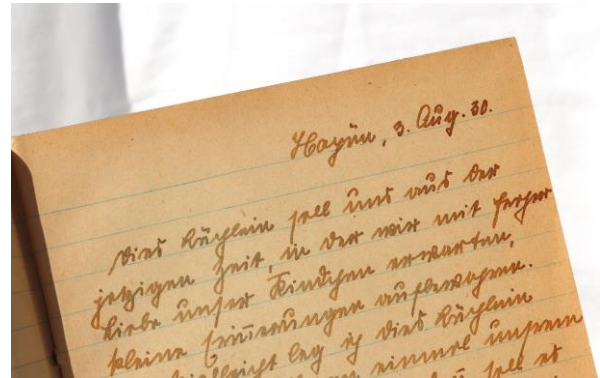 3. Aug. 30.
Dies Büchlein soll uns aus der
jetzigen Zeit, in der wir mit
Liebe unser Kindchen erwarten,
kleine Erin̄erungen aufbewahren.
Vielleicht leg ich dies Büchlein
einmal unsrem
soll es